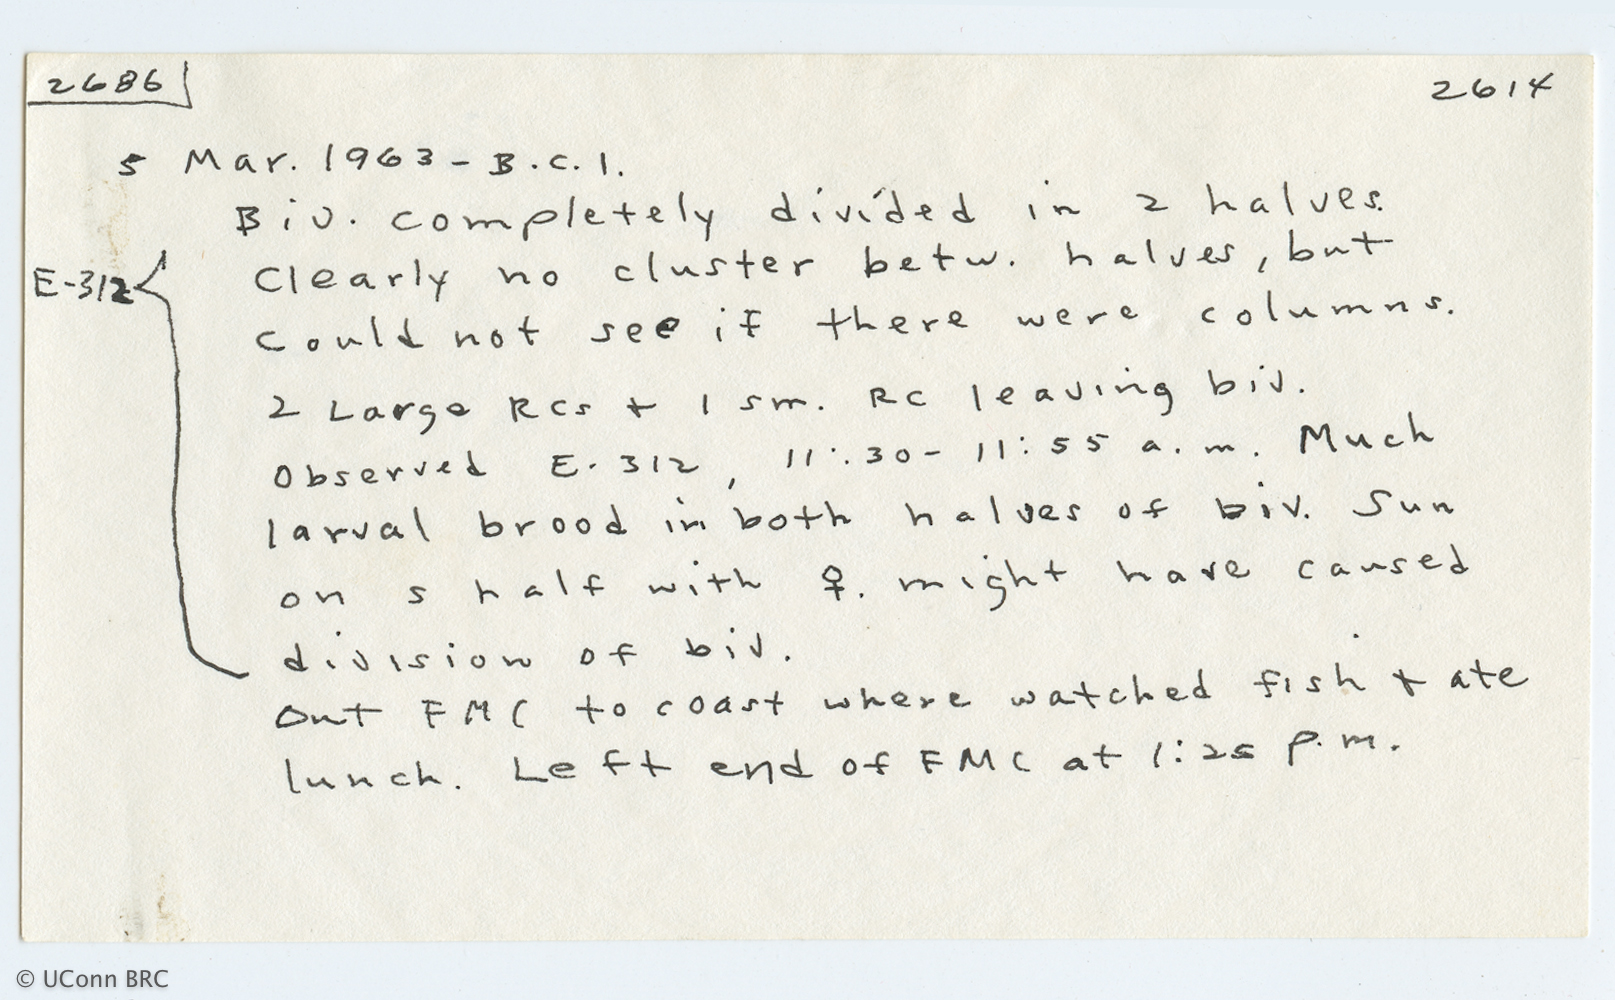 2686
2614
5 Mar. 1963 - B.C.I.
Biv. completely divided in 2 halves.
E-312
Clearly no cluster betw. halves, but
could not see if there were columns.
2 Large RCs + 1 sm. RC leaving biv.
Observed E-312, 11:30 - 11:55 a.m. Much
larval brood in both halves of biv. Sun
on s half with ♀. might have caused
division of biv.
Out FMC to coast where watched fish + ate
lunch. Left end of FMC at 1:25 p.m.
© UConn BRC